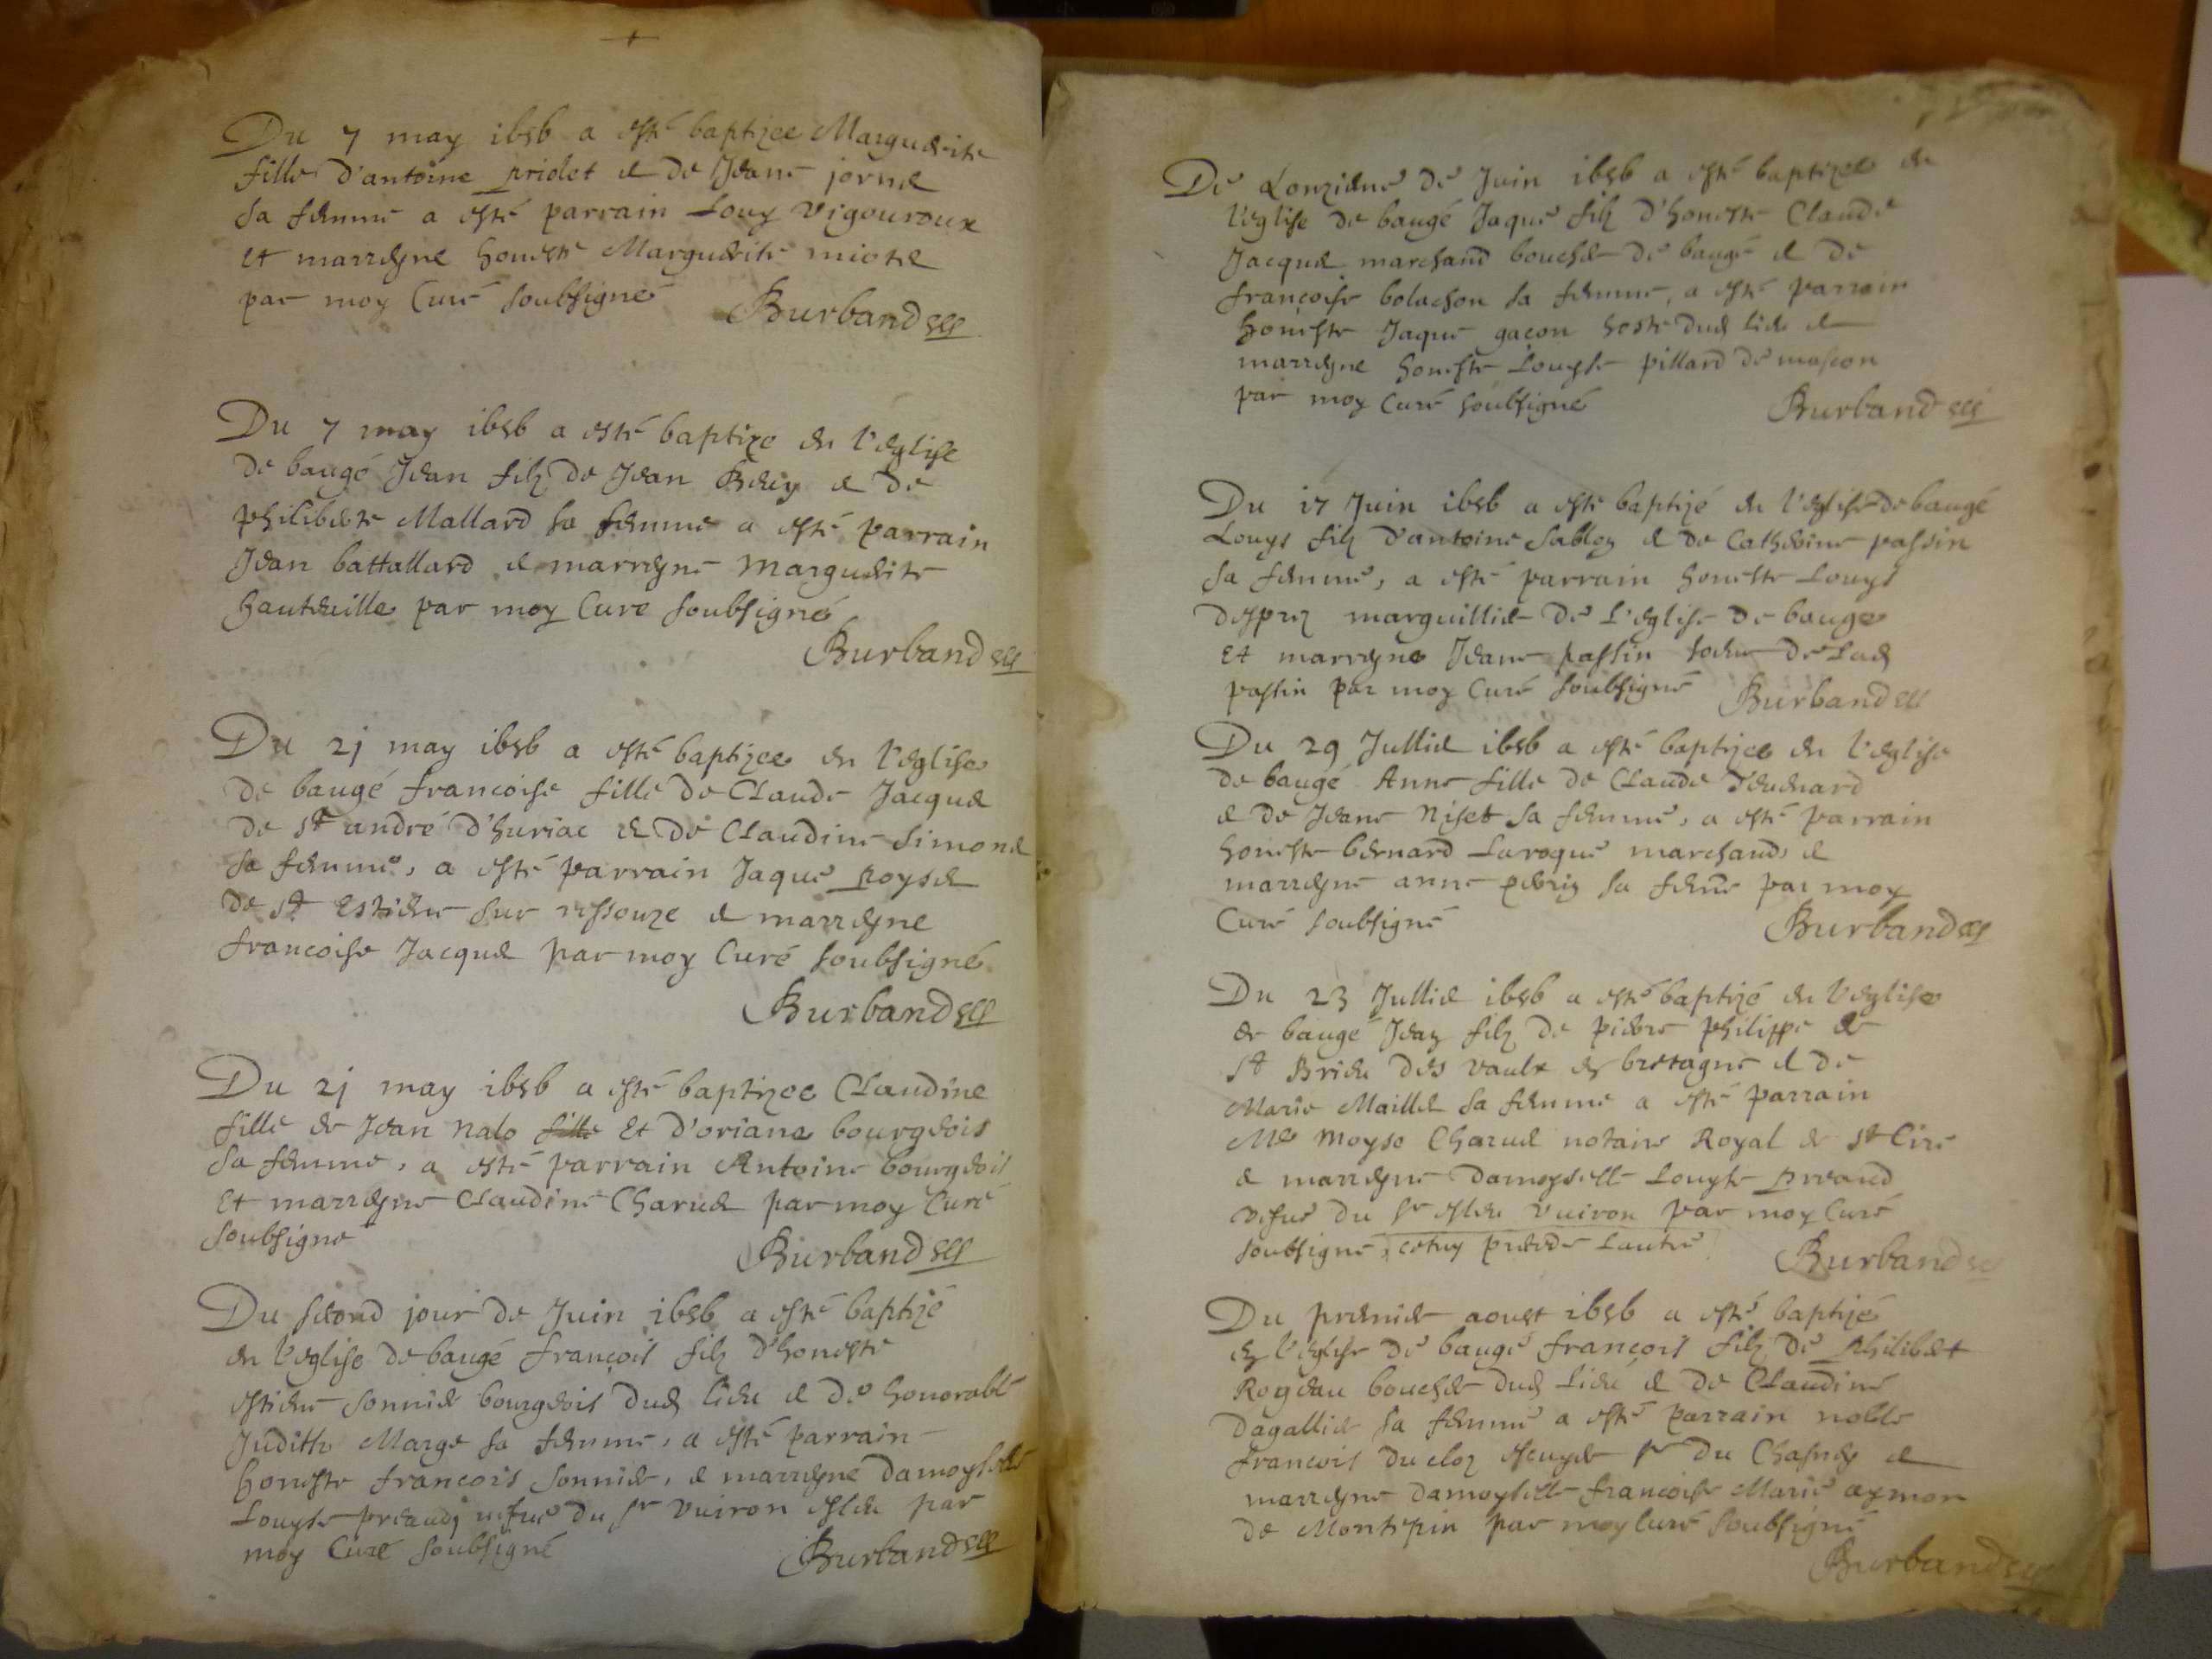 Du 7 may 1656 a esté baptizee Marguerite
fille d'antoine priolet et de Jeane jornet
sa femme a esté parrain Louy vigouroux
et marreyne honeste Marguerite miotet
par moy Curé soubsigné
Burband
Du 7 may 1656 a esté baptize en l'eglise
de baugé Jean filz de Jean et de
philiberte Mallard sa femme a esté parrain
Jean battallard et marreyne Marguerite
hauteville par moy Curé soubsigné
Burband
Du 21 may 1656 a esté baptizee en l'eglise
de baugé francoise fille de Claude Jacquet
de st andré d'huriac et de Claudine Simonet
sa femme, a esté parrain Jaque poyset
de st Estiene sur ressouze et marreyne
francoise Jacquet par moy Curé soubsigné
Burband
Du 21 may 1656 a esté baptizee Claudine
fille de Jean nalo fille et d'oriane bourgeois
sa femme, a esté parrain Antoine bourgeois
et marreyne Claudine Charvet par moy Curé
soubsigné
Burband
Du second jour de Juin 1656 a esté baptizé
en l'eglise de baugé françois filz d'honeste
estiene sonnier bourgeois dud lieu et de honorable
Judithe Marge sa femme, a esté parrain
honeste francois sonnier, et marreyne damoyselle
Louyse preaud, vefve du sr vuiron esleu par
moy Curé soubsigné
Burband
De Lonzieme de Juin 1656 a esté baptizee en
l'eglise de baugé Jaque filz d'honeste Claude
Jacquet marchand boucher de baugé et de
françoise bolachon sa femme, a esté parrain
honeste Jaque gaçon hoste dud lieu et
marreyne honeste Louyse pillard de mascon
par moy Curé soubsigné
Burband
Du 17 Juin 1656 a esté baptizé en l'eglise de baugé
Louys filz d'antoine Sabley et de Catherine passin
sa femme, a esté parrain honeste Louys
desprez marguillier de l'eglise de baugé
et marreyne Jeane passin soeur de Lad
passin par moy Curé soubsigné
Burband
Du 29 Jullier 1656 a esté baptizee en l'eglise
de baugé Anne fille de Claude
et de Jeane niset sa femme, a esté parrain
honeste bernard Laroque marchand, et
marreyne anne sa feme par moy
Curé soubsigné
Burband
Du 23 Jullie 1656 a esté baptizé en l'eglise
de baugé Jean filz de pierre philippe de
st Brieu des vaulx en bretagne et de
Marie Maillet sa femme a esté parrain
Me Moyse Charvet notaire Royal de st Cire
et marreyne damoyselle Louyse preaud
vefve du sr esleu vuiron par moy Curé
soubsigné, cetuy precede lautre
Burband
Du premier aoust 1656 a esté baptizé
en l'eglise de baugé françois filz de philibert
Rogeau boucher dud lieu et de Claudine
dagallier sa femme a esté parrain noble
francois du cloz escuyer sr du Chasney et
marreyne damoyselle francoise Marie aymon
de Montepin par moy Curé soubsigné
Burband